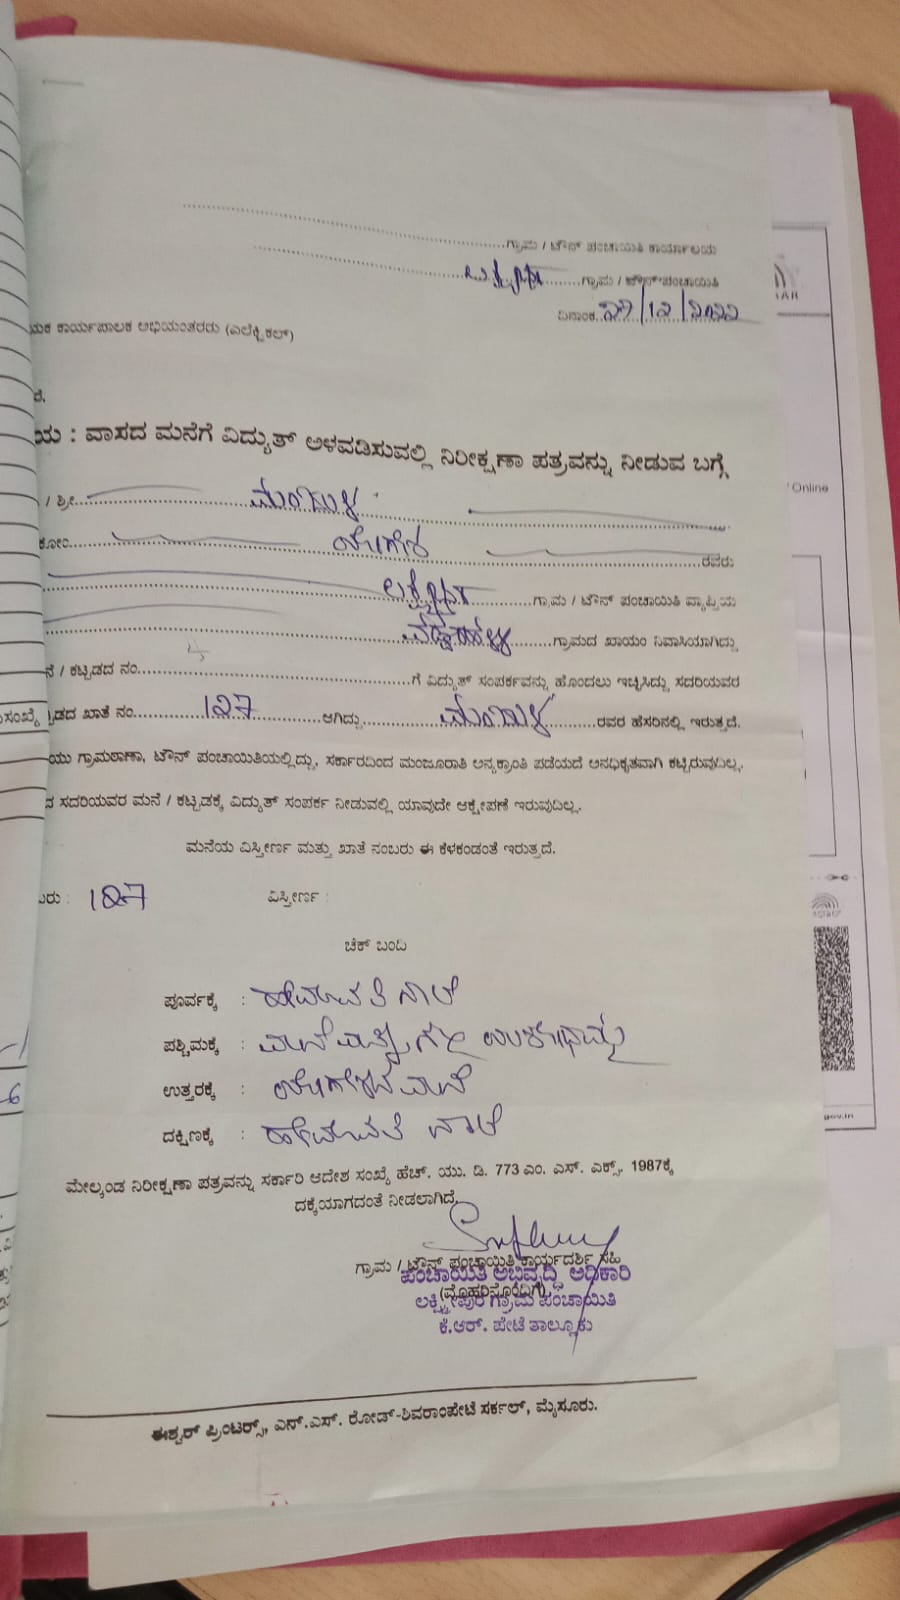 ಗ್ರಾಮ / ಟೌನ್ ಪಂಚಾಯಿತಿ ಕಾರ್ಯಾಲಯ
ಗ್ರಾಮ / ಟೌನ್ ಪಂಚಾಯಿತಿ
ದಿನಾಂಕ 27/12/2022
ಕಾರ್ಯಪಾಲಕ ಅಭಿಯಂತರರು (ಎಲೆಕ್ಟ್ರಿಕಲ್)
: ವಾಸದ ಮನೆಗೆ ವಿದ್ಯುತ್ ಅಳವಡಿಸುವಲ್ಲಿ ನಿರೀಕ್ಷಣಾ ಪತ್ರವನ್ನು ನೀಡುವ ಬಗ್ಗೆ
/ ಶ್ರೀ ಮಂಜುಳ
ಕೋಂ ಯೋಗೇಶ ರವರು
ಲಕ್ಷ್ಮೀಪುರ ಗ್ರಾಮ / ಟೌನ್ ಪಂಚಾಯಿತಿ ವ್ಯಾಪ್ತಿಯ
ಗ್ರಾಮದ ಖಾಯಂ ನಿವಾಸಿಯಾಗಿದ್ದು
/ ಕಟ್ಟಡದ ನಂ. ಗೆ ವಿದ್ಯುತ್ ಸಂಪರ್ಕವನ್ನು ಹೊಂದಲು ಇಚ್ಛಿಸಿದ್ದು ಸದರಿಯವರ
ಖಾತೆ ನಂ. 127 ಆಗಿದ್ದು ಮಂಜುಳ ರವರ ಹೆಸರಿನಲ್ಲಿ ಇರುತ್ತದೆ.
ಗ್ರಾಮಠಾಣಾ, ಟೌನ್ ಪಂಚಾಯಿತಿಯಲ್ಲಿದ್ದು, ಸರ್ಕಾರದಿಂದ ಮಂಜೂರಾತಿ ಅನ್ಯಕ್ರಾಂತಿ ಪಡೆಯದೆ ಅನಧಿಕೃತವಾಗಿ ಕಟ್ಟಿರುವುದಿಲ್ಲ.
ಸದರಿಯವರ ಮನೆ / ಕಟ್ಟಡಕ್ಕೆ ವಿದ್ಯುತ್ ಸಂಪರ್ಕ ನೀಡುವಲ್ಲಿ ಯಾವುದೇ ಆಕ್ಷೇಪಣೆ ಇರುವುದಿಲ್ಲ.
ಮನೆಯ ವಿಸ್ತೀರ್ಣ ಮತ್ತು ಖಾತೆ ನಂಬರು ಈ ಕೆಳಕಂಡಂತೆ ಇರುತ್ತದೆ.
: 127 ವಿಸ್ತೀರ್ಣ :
ಚೆಕ್ ಬಂದಿ
ಪೂರ್ವಕ್ಕೆ : ಹೇಮಾವತಿ ನಾಲೆ
ಪಶ್ಚಿಮಕ್ಕೆ :
ಉತ್ತರಕ್ಕೆ : ಯೋಗೇಶನ ಮನೆ
ದಕ್ಷಿಣಕ್ಕೆ : ಹೇಮಾವತಿ ನಾಲೆ
ಮೇಲ್ಕಂಡ ನಿರೀಕ್ಷಣಾ ಪತ್ರವನ್ನು ಸರ್ಕಾರಿ ಆದೇಶ ಸಂಖ್ಯೆ ಹೆಚ್. ಯು. ಡಿ. 773 ಎಂ. ಎಸ್. ಎಕ್ಸ್. 1987ಕ್ಕೆ
ದಕ್ಕೆಯಾಗದಂತೆ ನೀಡಲಾಗಿದೆ.
ಗ್ರಾಮ / ಟೌನ್ ಪಂಚಾಯಿತಿ ಕಾರ್ಯದರ್ಶಿ ಸಹಿ
ಪಂಚಾಯಿತಿ ಅಭಿವೃದ್ಧಿ ಅಧಿಕಾರಿ
(ಮೊಹರಿನೊಂದಿಗೆ)
ಲಕ್ಷ್ಮೀಪುರ ಗ್ರಾಮ ಪಂಚಾಯಿತಿ
ಕೆ.ಆರ್. ಪೇಟೆ ತಾಲ್ಲೂಕು
ಈಶ್ವರ್ ಪ್ರಿಂಟರ್ಸ್, ಎನ್.ಎಸ್. ರೋಡ್-ಶಿವರಾಂಪೇಟೆ ಸರ್ಕಲ್, ಮೈಸೂರು.
Online
gov.in